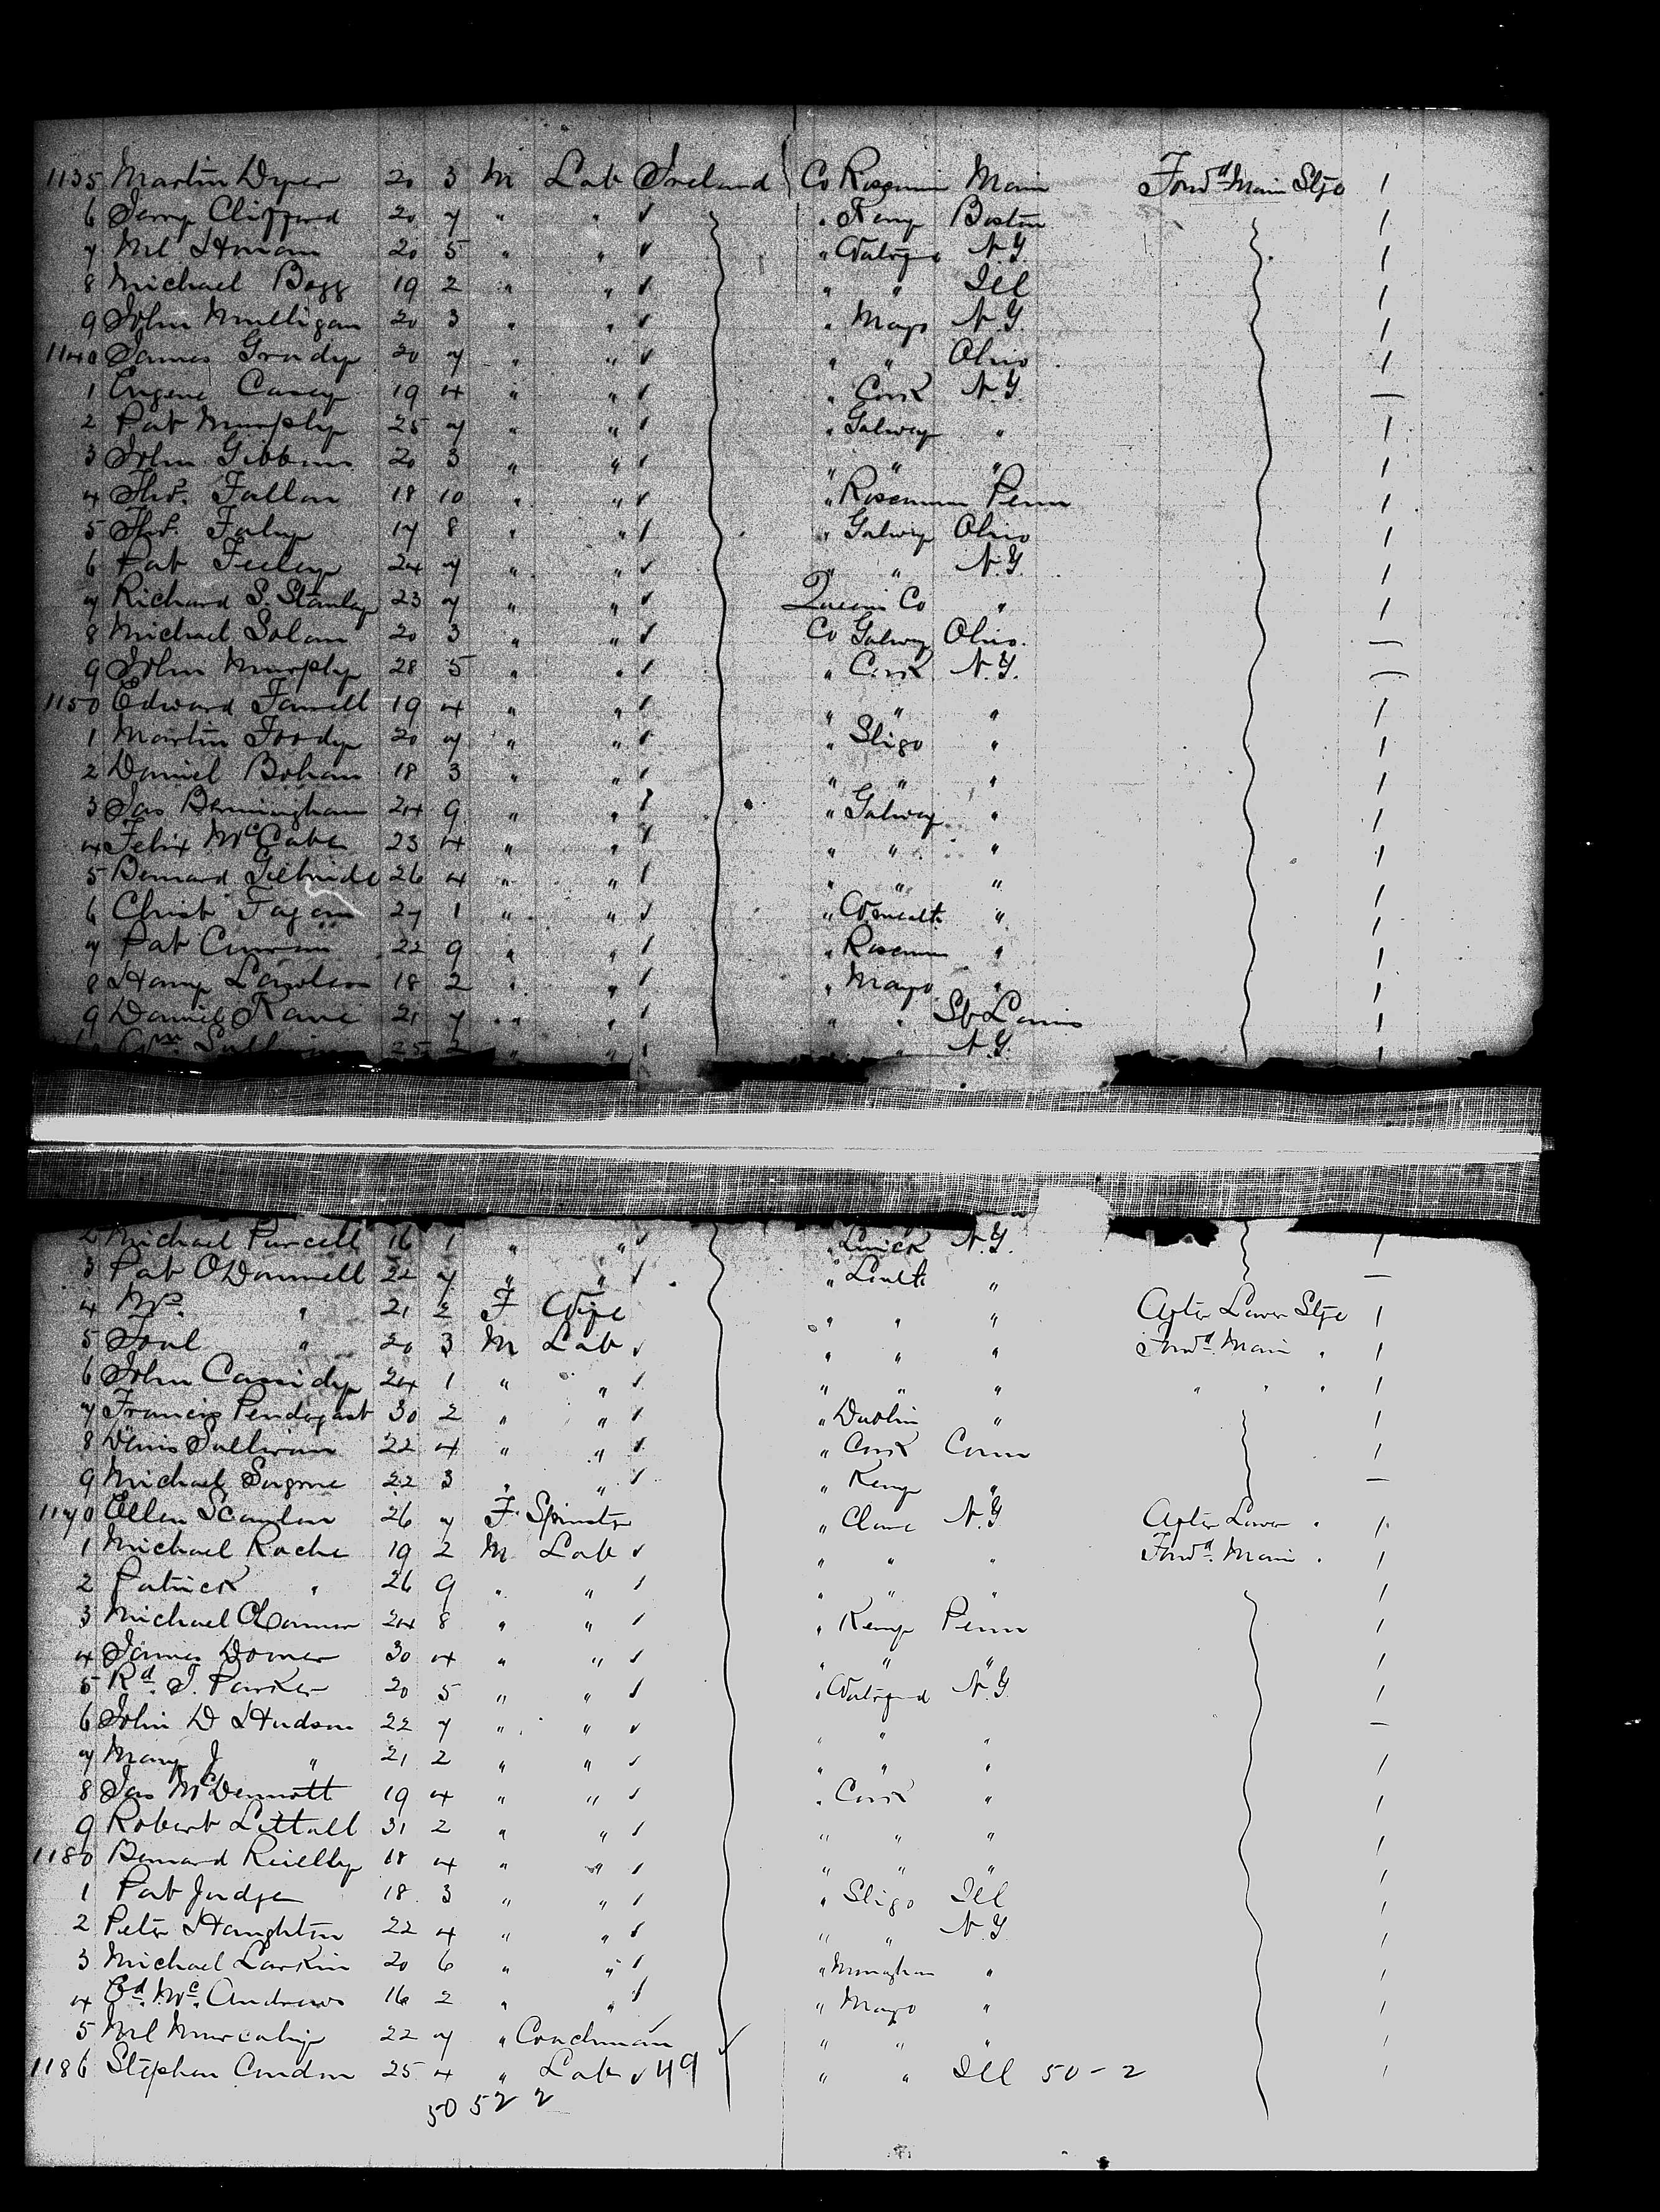 1135 Martin Dyer 20 3 M Lab Ireland Co Roscmn Main Forwd Main Stge 1
6 Clifford 20 7 " " ✓ " Kerry Boston 1
7 Ml 20 5 " " ✓ " N.Y. 1
8 Michael 19 2 " " ✓ " " Ill 1
9 John Mulligan 20 3 " " ✓ " Mayo N.Y. 1
1140 James Grady 20 7 " " ✓ " " Ohio 1
1 Eugene Casey 19 4 " " ✓ " Cork N.Y. —
2 Pat Murphy 25 7 " " ✓ " Galway " 1
3 John Gibbons 20 3 " " ✓ " " " 1
4 Thos. Fallon 18 10 " " ✓ " Roscmn Penn 1
5 Thos. 17 8 " " ✓ " Galway Ohio 1
6 Pat Feeley 24 7 " " ✓ " " N.Y. 1
7 Richard S. Stanley 23 7 " " ✓ Queens Co " 1
8 Michael Solan 20 3 " " ✓ Co Galway Ohio. —
9 John Murphy 28 5 " " ✓ " Cork N.Y. —
1150 Edward Farrell 19 4 " " ✓ " " " 1
1 Martin Foody 20 7 " " ✓ " Sligo " 1
2 Daniel Bohan 18 3 " " ✓ " " " 1
3 Jas Bermingham 24 9 " " ✓ " Galway " 1
4 Felix McCabe 23 4 " " ✓ " " " 1
5 Bernard Gilbride 26 4 " " ✓ " " " 1
6 Christ Fagan 27 1 " " ✓ " " 1
7 Pat Curran 22 9 " " ✓ " Roscmn " 1
8 18 2 " " ✓ " Mayo " 1
9 Daniel Kane 21 7 " " ✓ " " St Louis 1
Wm 25 2 " " ✓ " N.Y. 1
2 Michael Purcell 16 1 " " ✓ " Lmick N.Y. 1
3 Pat ODonnell 22 7 " " ✓ " " —
4 Mrs. " 21 2 F Wife " " " After Lower Stge 1
5 " 20 3 M Lab ✓ " " " Forwd. Main " 1
6 John Cassidy 24 1 " " ✓ " " " " " " 1
7 Francis Pendegast 30 2 " " ✓ " Dublin " 1
8 Denis Sullivan 22 4 " " ✓ " Cork Conn 1
9 Michael Sugrue 22 3 " " ✓ " Kerry " —
1170 Ellen Scanlon 26 7 F Spinster " Clare N.Y After Lower " 1
1 Michael Roche 19 2 M Lab ✓ " " " Forwd. Main " 1
2 Patrick " 26 9 " " ✓ " " " 1
3 Michael OConnor 24 8 " " ✓ " Kerry Penn 1
4 James 30 4 " " ✓ " " " 1
5 Rd. J. Parker 20 5 " " ✓ " Watrford N.Y. 1
6 John D Hudson 22 7 " " ✓ " " " —
7 Mary J " 21 2 " " ✓ " " " 1
8 Jas McDermott 19 4 " " ✓ " Cork " 1
9 Robert Littall 31 2 " " ✓ " " " 1
1180 Bernard Rieelly 18 4 " " ✓ " " " 1
1 Pat Judge 18 3 " " ✓ " Sligo Ill 1
2 Peter Haughton 22 4 " " ✓ " " N.Y 1
3 Michael Larkin 20 6 " " ✓ " Monaghan " 1
4 Ed. Mc. Andrews 16 2 " " ✓ " Mayo " 1
5 Ml 22 7 " Coachman ✓ " " " 1
1186 Stephen Condon 25 4 " Lab ✓ 49 " " Ill 50 - 2 1
50 52 2